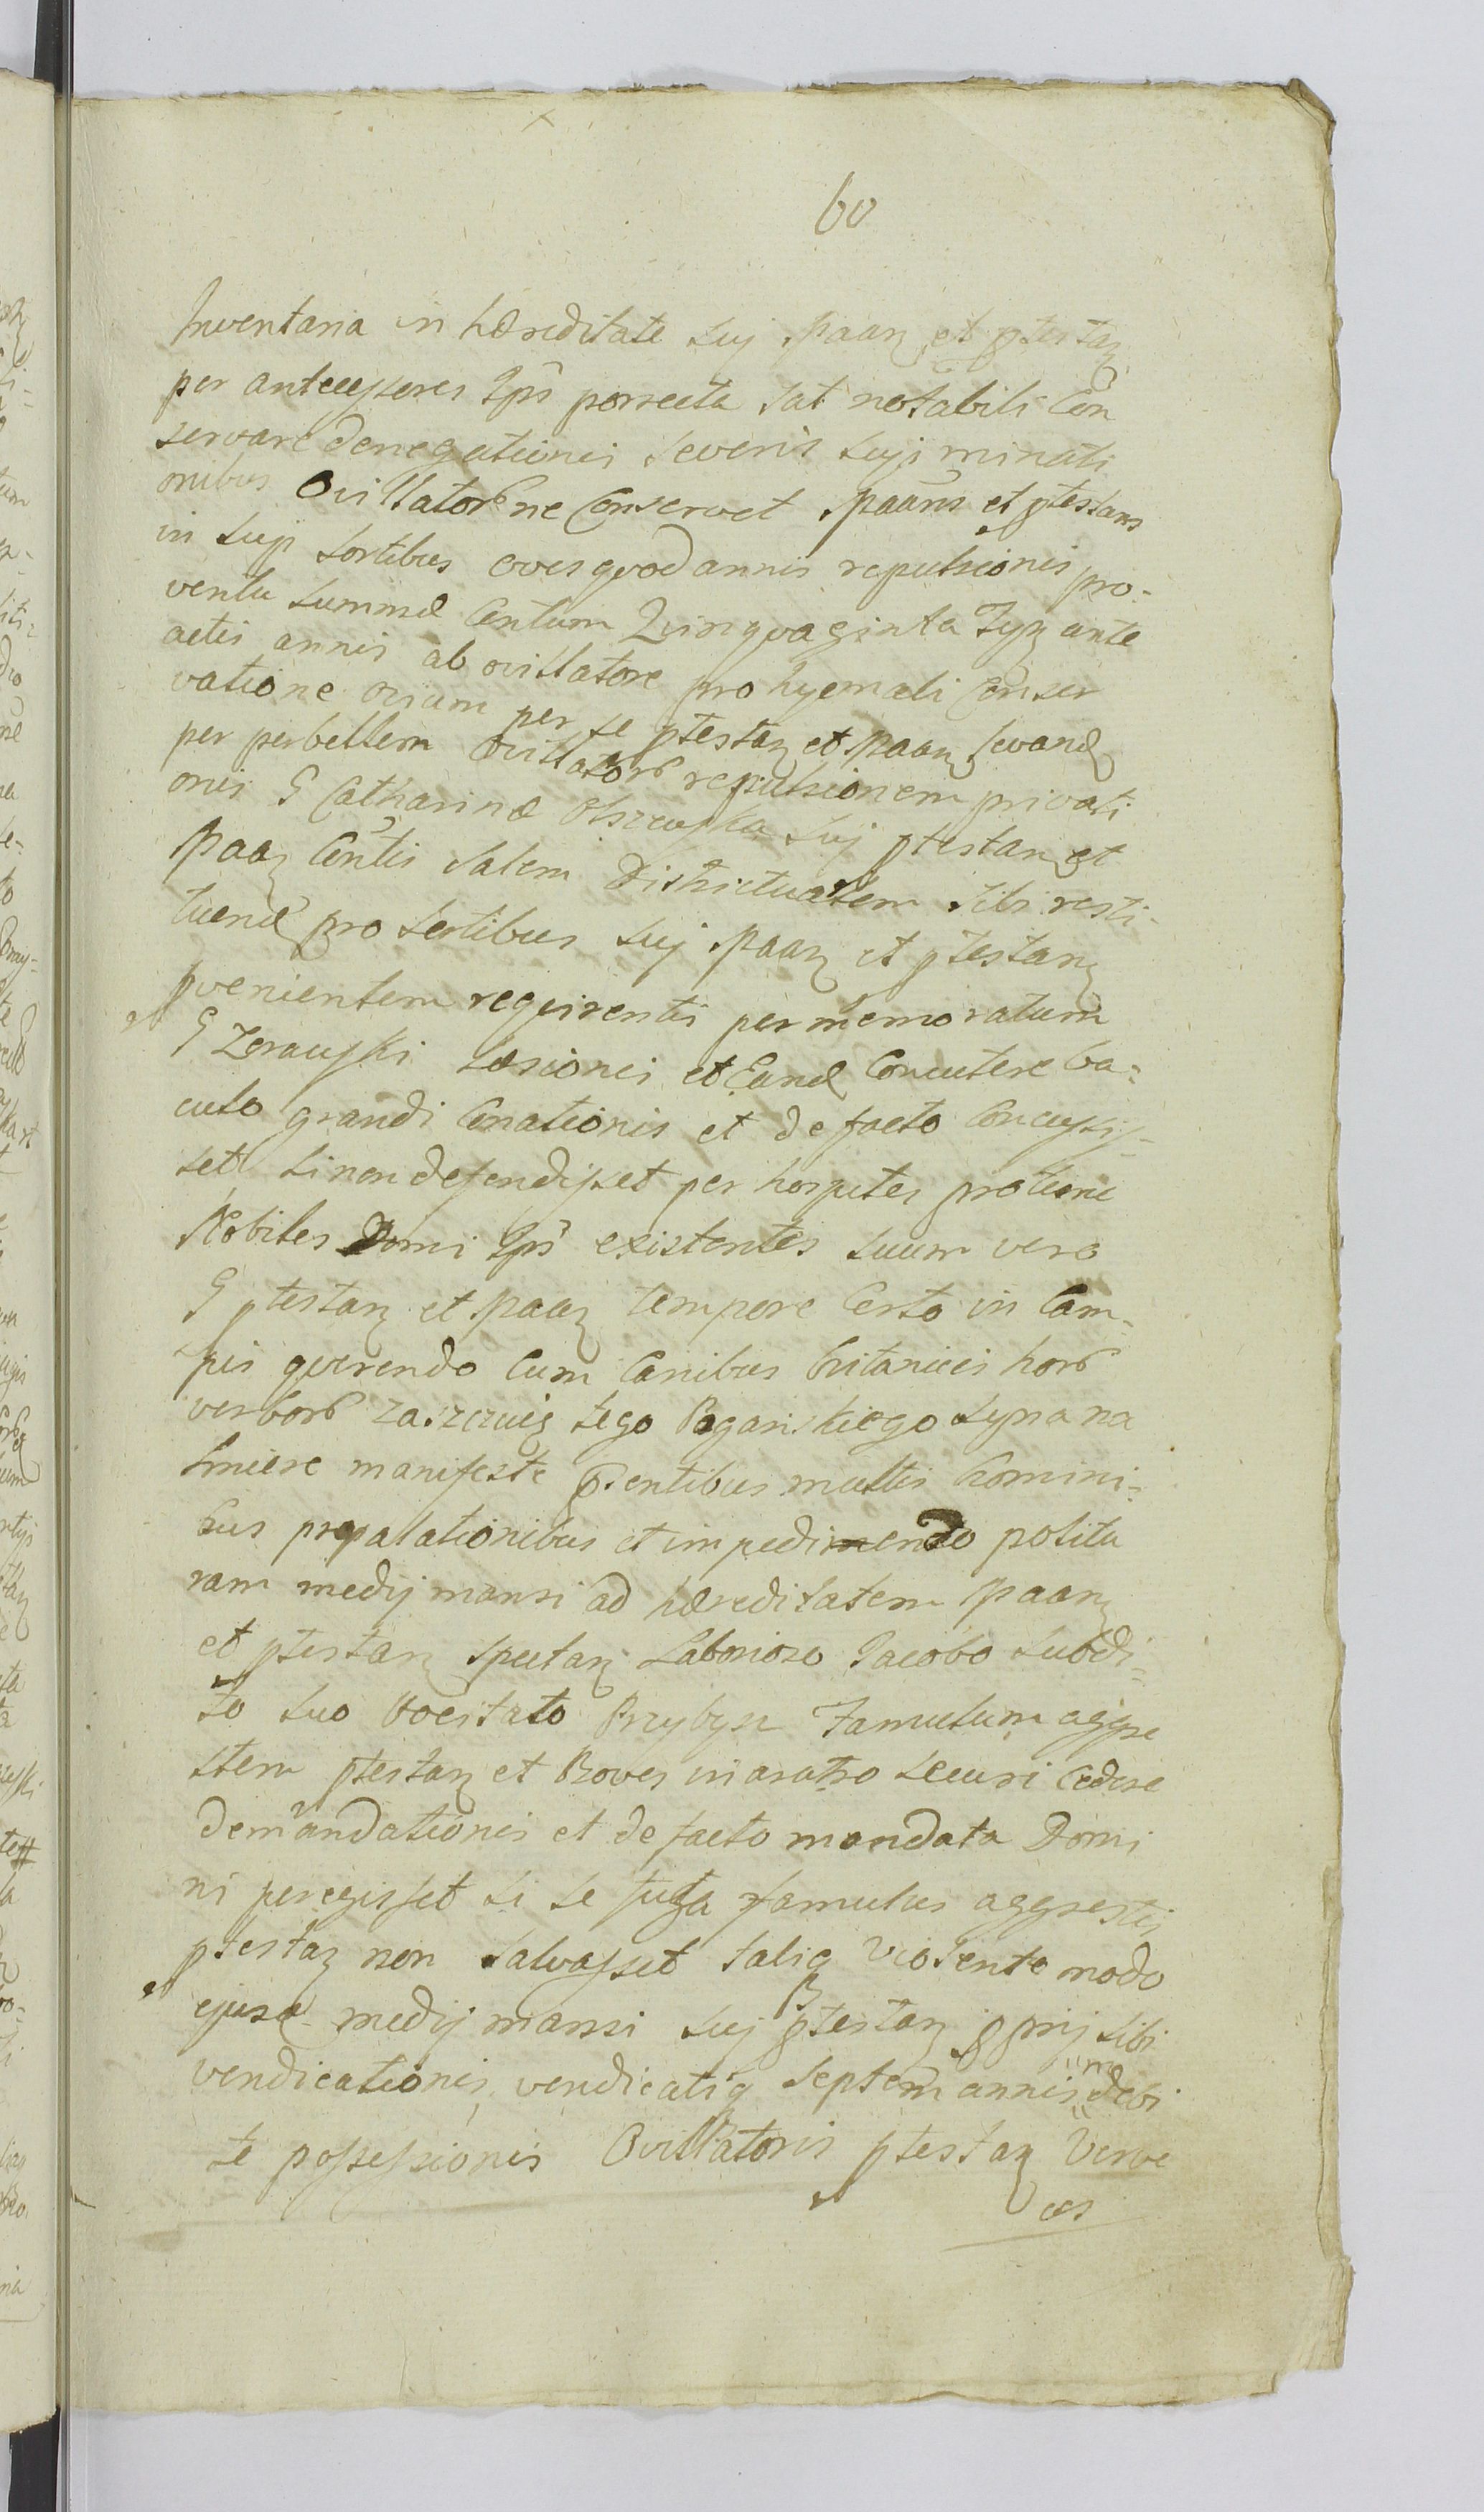 60
Inventaria in hæreditate suj Paaz et ptestaz
per antecessores Ipŝ porrecta sat notabili Con
servare denegationis severis sujs minati
onibus Ovillatorē ne Conservet Paans et ptestans
in sujs sortibus oves quod annis repulsionis pro-
ventu summæ Centum Quinquaginta Tyz ante
actis annis ab ovillatore pro hyemali Conser
vatione ovium per se ptestaz et Paaz levand
per perbellem Ovillatorē repulsionem privati
onis G Catharinæ Olszewska suj ptestan et
Paaz Contis salem Districtualem sibi resti-
tuend pro sortibus suj Paaz et ptestanz
pvenientem requirentis per memoratum
G Zerawski læsionis et Eand Concutere ba-
culo grandi Conationis et de facto Concussis-
set si non defendisset per hospites protunc
Nobiles Domi Ipŝ existentes suum vero
G ptestaz et Paaz tempore Certo in Cam-
pis querendo Cum Canibus Britanicis horb
verborb zaszczuię tego Pogańskiego syna na
smierc manifeste psentibus multis homini-
bus propalationibus et impediendo politu
ram medij mansi ad hæreditatem Paanz
et ptestanz spectanz Laborioso Jacobo subdi-
to suo vocitato Przybysz Famulum aggre
stem ptestaz et Boves in aratro securi Cedere
demandationis et de facto mandata Domi
ni peregisset si se fuga famulus aggrestis
ptestaz non salvasset taliq violente modo
ejusd medij mansi suj ptestaz pprij sibi
vendicationis, vendicatiq septem annis indebi
te possessionis Ovillatoris ptestaz Verve
ces